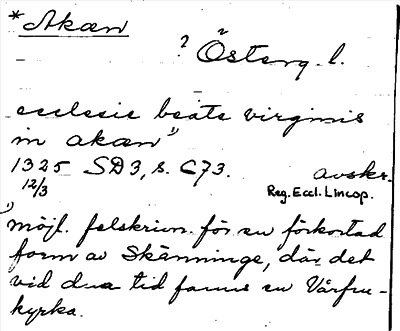 *Akæn
? Österg. l.
ecclesie beate virginis
in akæn 1)
1325 SD3, s. 673. avskr.
12/3 Reg. Eccl. Lincop.
1) möjl. felskrivn. för en förkortad
form av Skänninge, där det
vid den tid fanns en Vårfru-
kyrka.